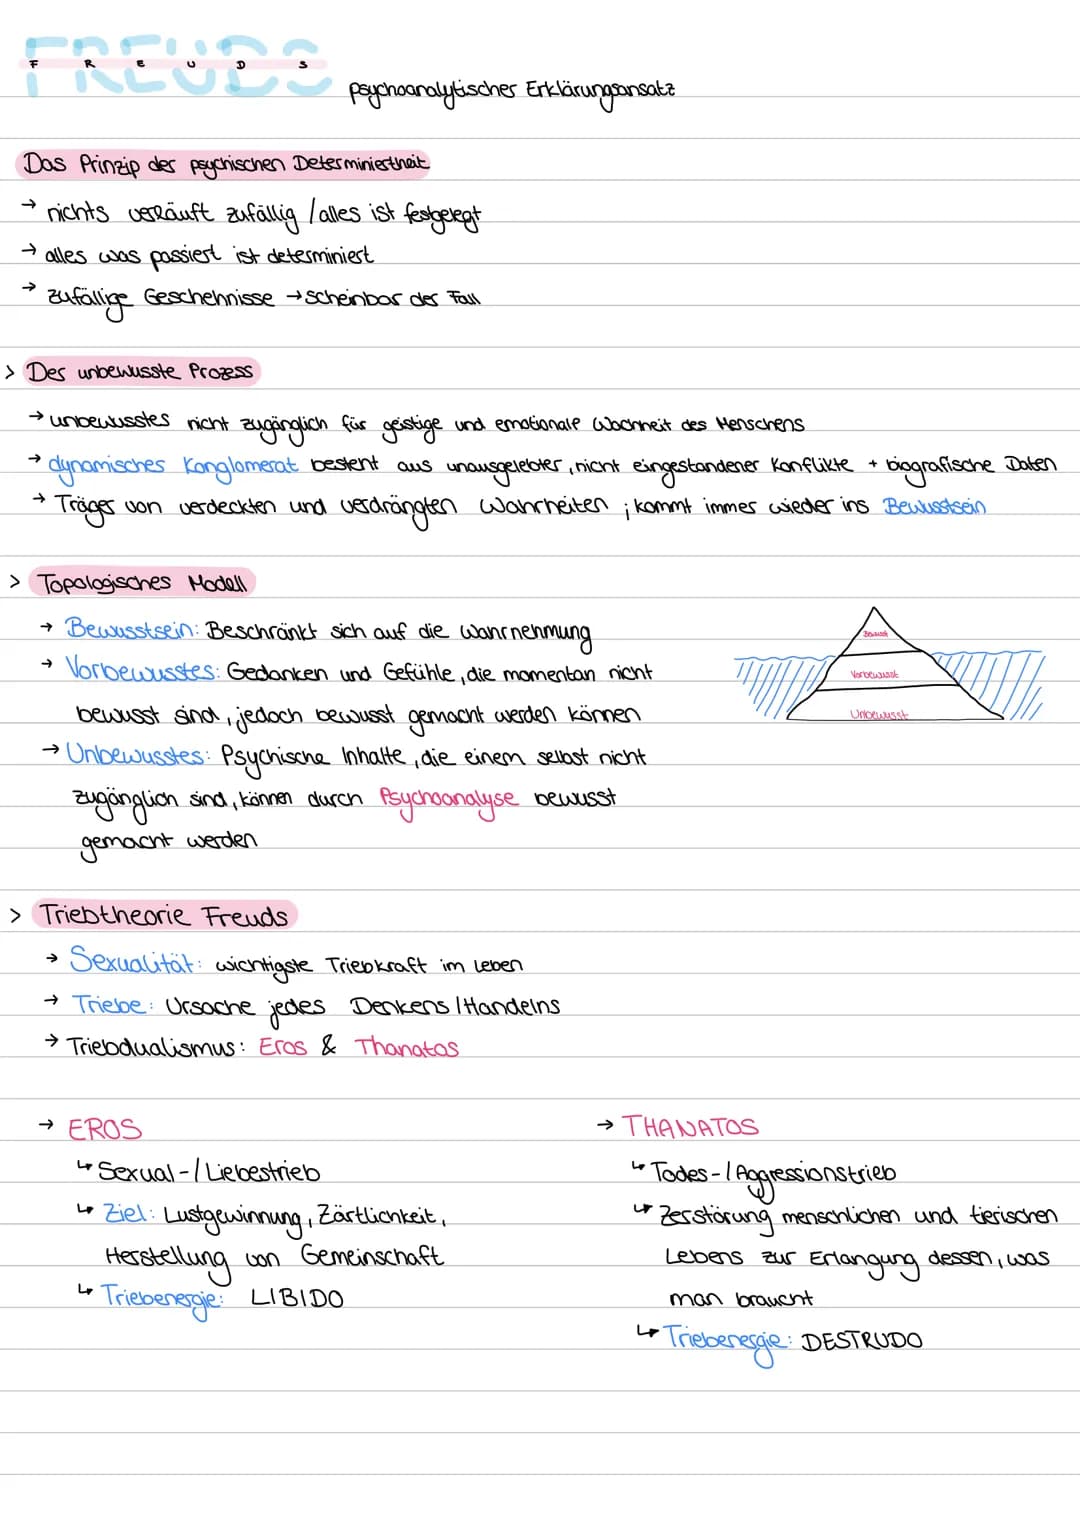 FREUDS
psychoanalytischer Erklärungsansatz
Das Prinzip der psychischen Determiniertheit
→ nichts verläuft zufällig / alles ist festgelegt
→ alles was passiert ist determiniert
→ zufällige Geschehnisse → scheinbar der Fall
> Der unbewusste Prozess
→ unbewusstes nicht zugänglich für geistige und emotionale Wachheit des Menschens
→ dynamisches Konglomerat besteht aus unausgelebter, nicht eingestandener Konflikte + biografische Daten
→ Träger von verdeckten und verdrängten Wahrheiten ; kommt immer wieder ins Bewusstsein
> Topologisches Modell
→ Bewusstsein: Beschränkt sich auf die Wahrnehmung
→ Vorbewusstes: Gedanken und Gefühle, die momentan nicht
bewusst sind, jedoch bewusst gemacht werden können
→ Unbewusstes: Psychische Inhalte, die einem selbst nicht
zugänglich sind, können durch Psychoanalyse bewusst
gemacht werden
Bewusst
Vorbewusst
Unbewusst
> Triebtheorie Freuds
→ Sexualität: wichtigste Triebkraft im Leben
→ Triebe: Ursache jedes Denkens / Handelns
→ Triebdualismus: Eros & Thanatos
→ EROS
↳ Sexual-/Liebestrieb
↳ Ziel: Lustgewinnung, Zärtlichkeit,
Herstellung von Gemeinschaft
↳ Triebenergie: LIBIDO
→ THANATOS
↳ Todes-/Aggressionstrieb
↳ Zerstörung menschlichen und tierischen
Lebens zur Erlangung dessen, was
man braucht
↳ Triebenergie: DESTRUDO